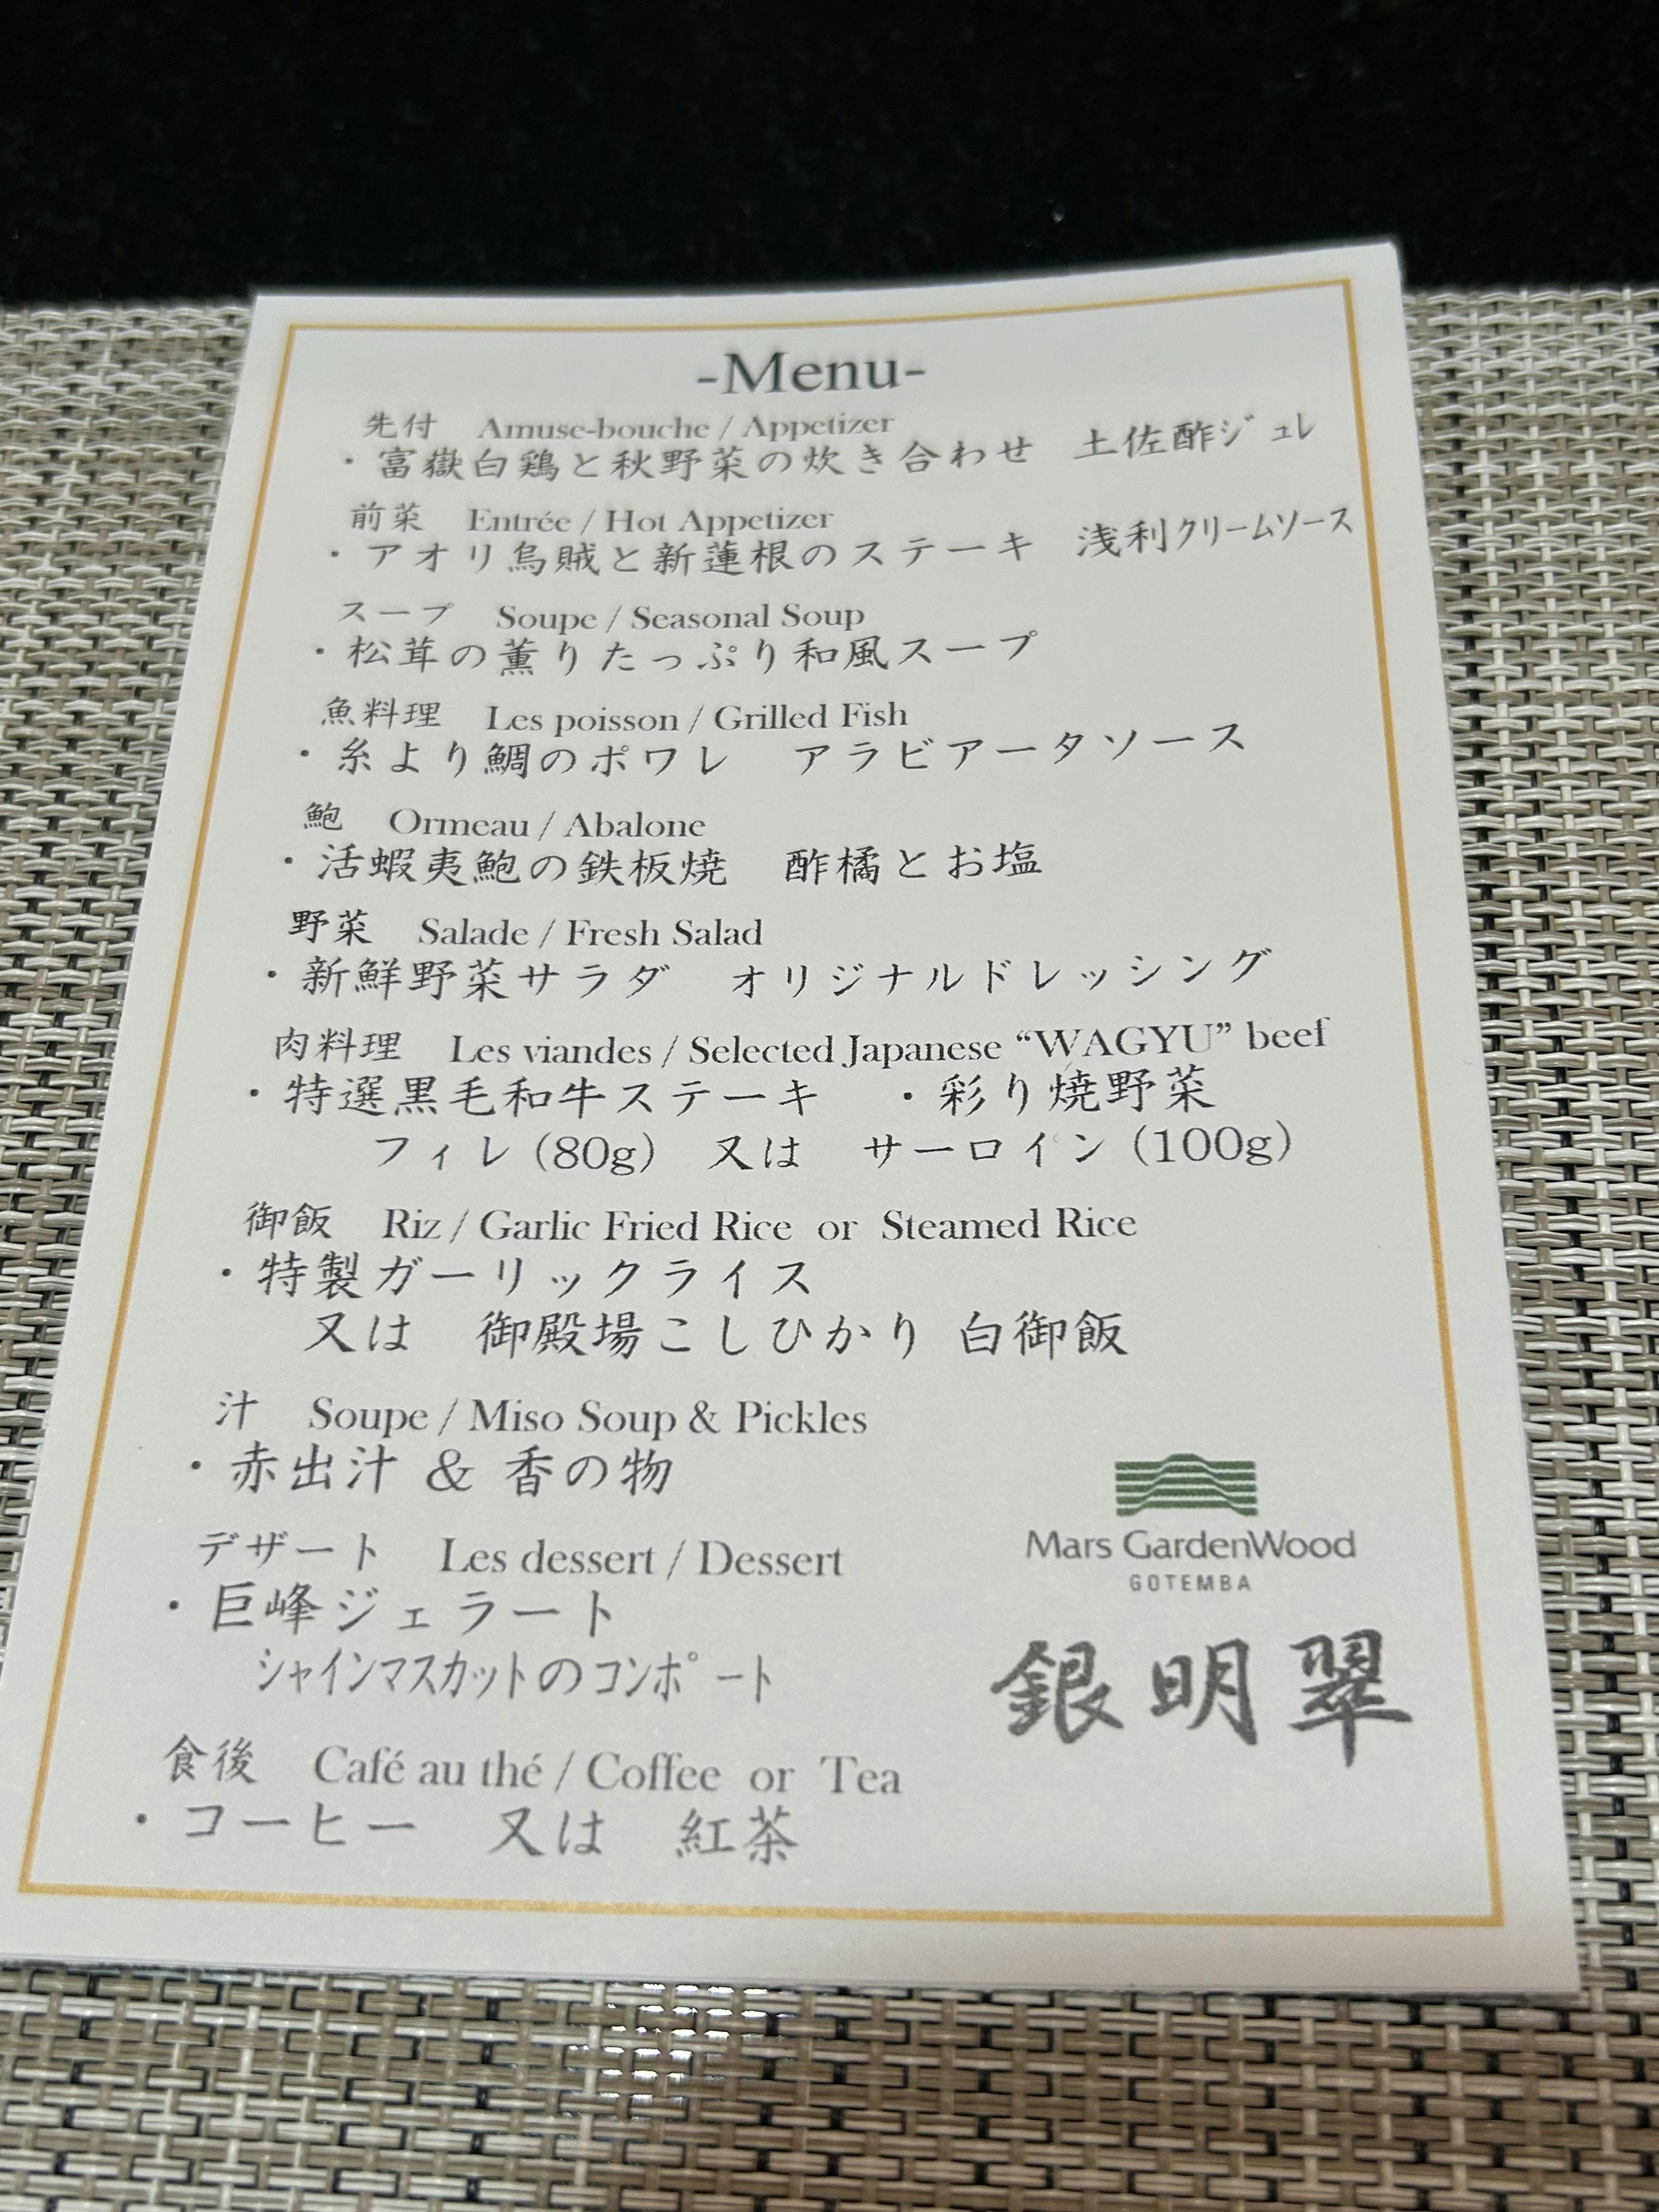 -Menu-
先付 Amuse-bouche / Appetizer
・富嶽白鶏と秋野菜の炊き合わせ 土佐酢ジュレ
前菜 Entrée / Hot Appetizer
・アオリ烏賊と新蓮根のステーキ 浅利クリームソース
スープ Soupe / Seasonal Soup
・松茸の薫りたっぷり和風スープ
魚料理 Les poisson / Grilled Fish
・糸より鯛のポワレ アラビアータソース
鮑 Ormeau / Abalone
・活蝦夷鮑の鉄板焼 酢橘とお塩
野菜 Salade / Fresh Salad
・新鮮野菜サラダ オリジナルドレッシング
肉料理 Les viandes / Selected Japanese “WAGYU” beef
・特選黒毛和牛ステーキ ・彩り焼野菜
フィレ (80g) 又は サーロイン (100g)
御飯 Riz / Garlic Fried Rice or Steamed Rice
・特製ガーリックライス
又は 御殿場こしひかり 白御飯
汁 Soupe / Miso Soup & Pickles
・赤出汁 & 香の物
デザート Les dessert / Dessert
・巨峰ジェラート
シャインマスカットのコンポート
食後 Café au thé / Coffee or Tea
・コーヒー 又は 紅茶
Mars GardenWood
GOTEMBA
銀明翠